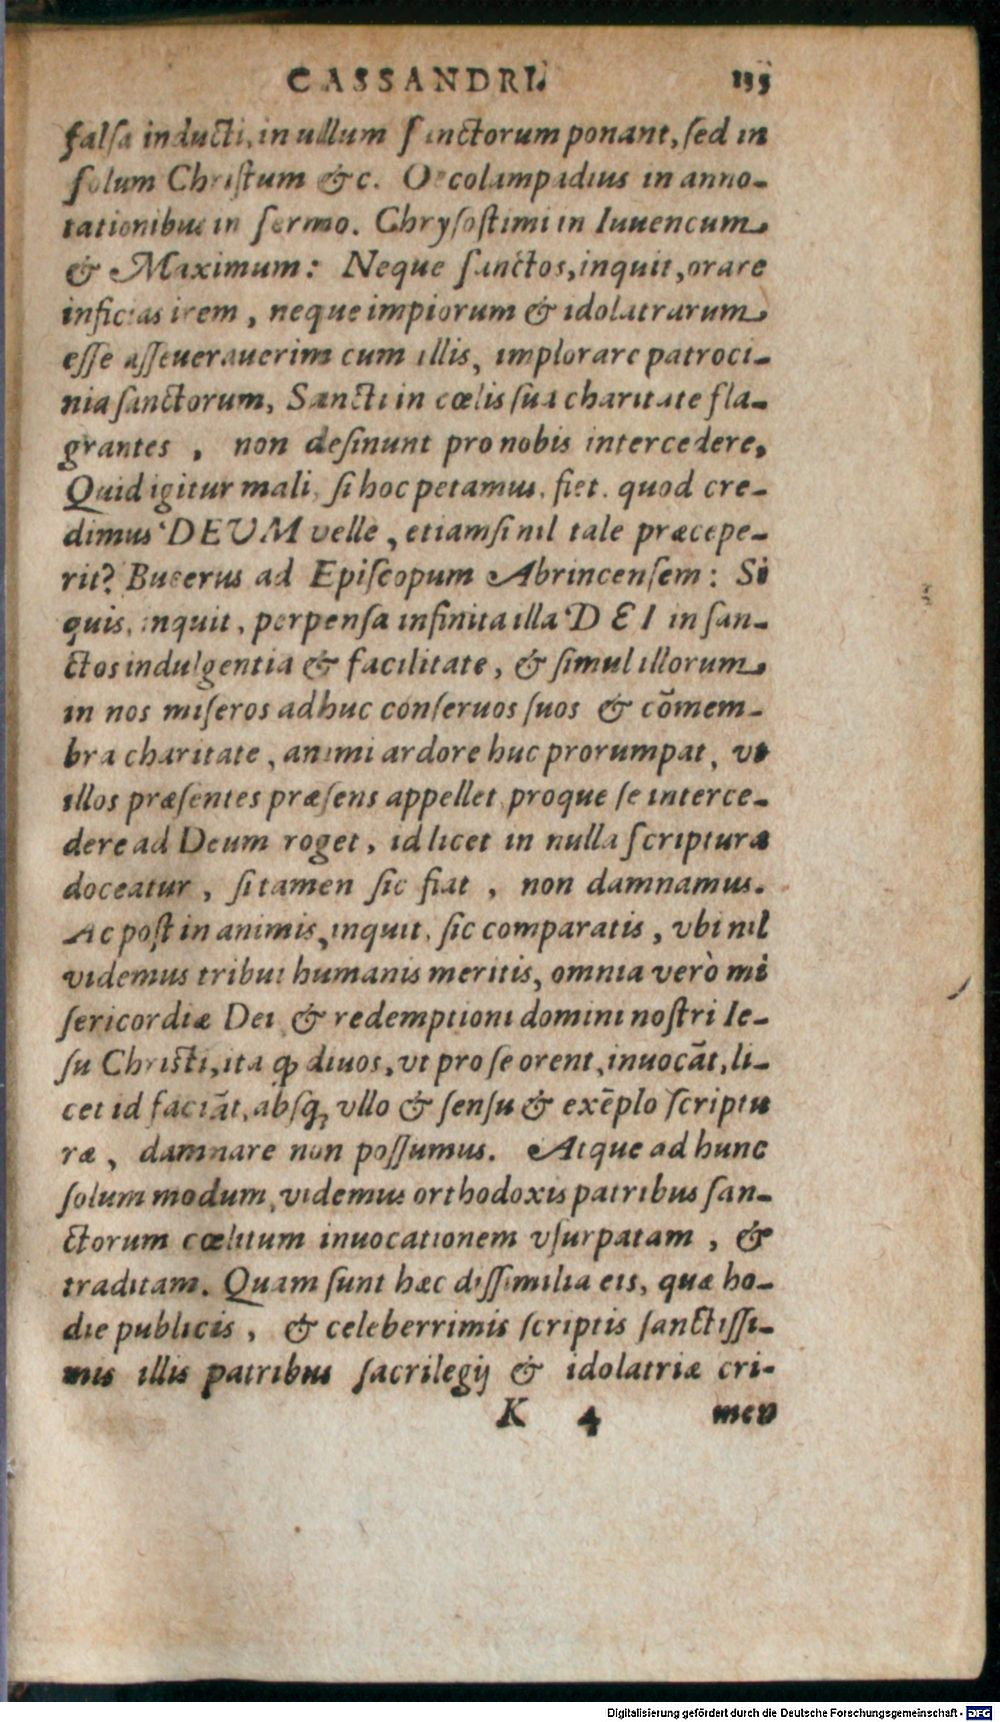 CASSANDRI. 155
falsa inducti, in ullum sanctorum ponant, sed in
solum Christum &c. Oecolampadius in anno-
tationibus in sermo. Chrysostimi in Iuuencum
& Maximum: Neque sanctos, inquit, orare
inficias irem, neque impiorum & idolatrarum
esse asseuerauerim cum illis, implorare patroci-
nia sanctorum, Sancti in cœlis sua charitate fla-
grantes, non desinunt pro nobis intercedere,
Quid igitur mali, si hoc petamus, fiet, quod cre-
dimus DEUM velle, etiamsi nil tale præcepe-
rit? Bucerus ad Episcopum Abrincensem: Si
quis, inquit, perpensa infinita illa DEI in san-
ctos indulgentia & facilitate, & simul illorum
in nos miseros adhuc conseruos suos & cõmem-
bra charitate, animi ardore huc prorumpat, vt
illos præsentes præsens appellet proque se interce-
dere ad Deum roget, id licet in nulla scriptura
doceatur, si tamen sic fiat, non damnamus.
Ac post in animis, inquit, sic comparatis, vbi nil
videmus tribui humanis meritis, omnia verò mi
sericordiæ Dei & redemptioni domini nostri Ie-
su Christi, ita ꝙ diuos, vt pro se orent, inuocãt, li-
cet id faciãt, absq; vllo & sensu & exẽplo scriptu
ræ, damnare non possumus. Atque ad hunc
solum modum, videmus orthodoxis patribus san-
ctorum cœlitum inuocationem vsurpatam, &
traditam. Quam sunt hæc dissimilia eis, quæ ho-
die publicis, & celeberrimis scriptis sanctissi-
mis illis patribus sacrilegij & idolatriæ cri-
K 4 men
Digitalisierung gefördert durch die Deutsche Forschungsgemeinschaft - DFG